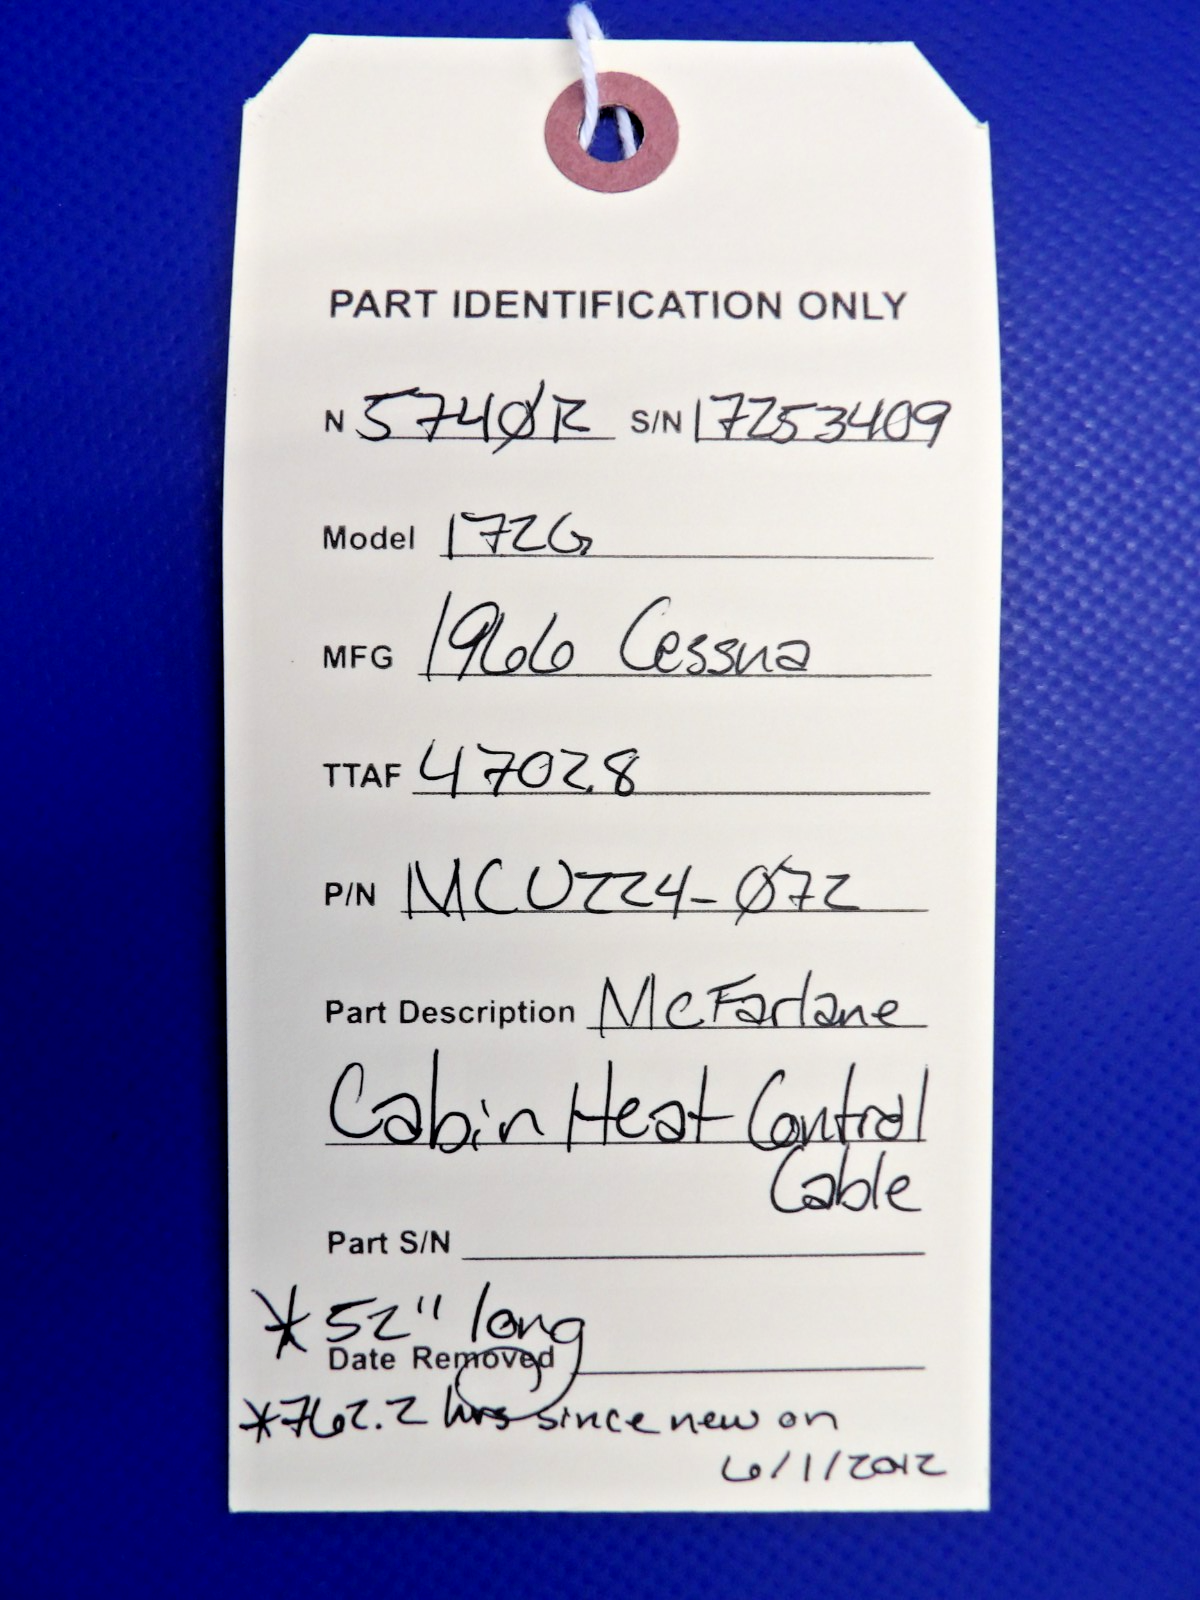 PART IDENTIFICATION ONLY
N 5740R S/N 17253409
Model 172G
MFG 1966 Cessna
TTAF 4702.8
P/N MCU224-072
Part Description McFarlane
Cabin Heat Control
Cable
Part S/N
* 52" long
Date Removed
*762.2 hrs since new on
6/1/2012